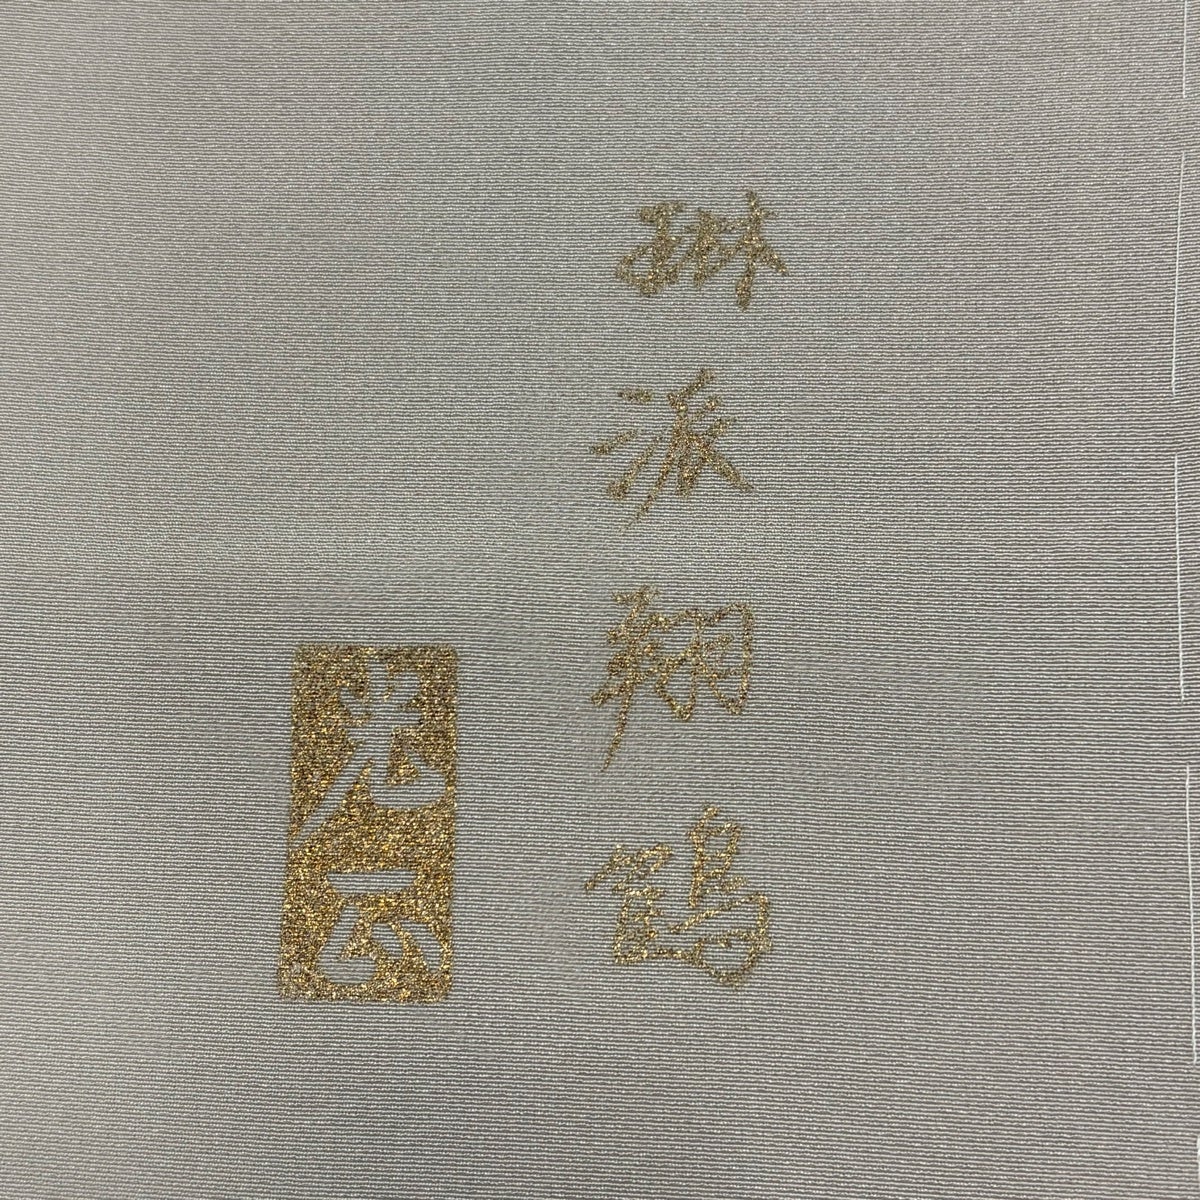 琳派翔鶴
光云